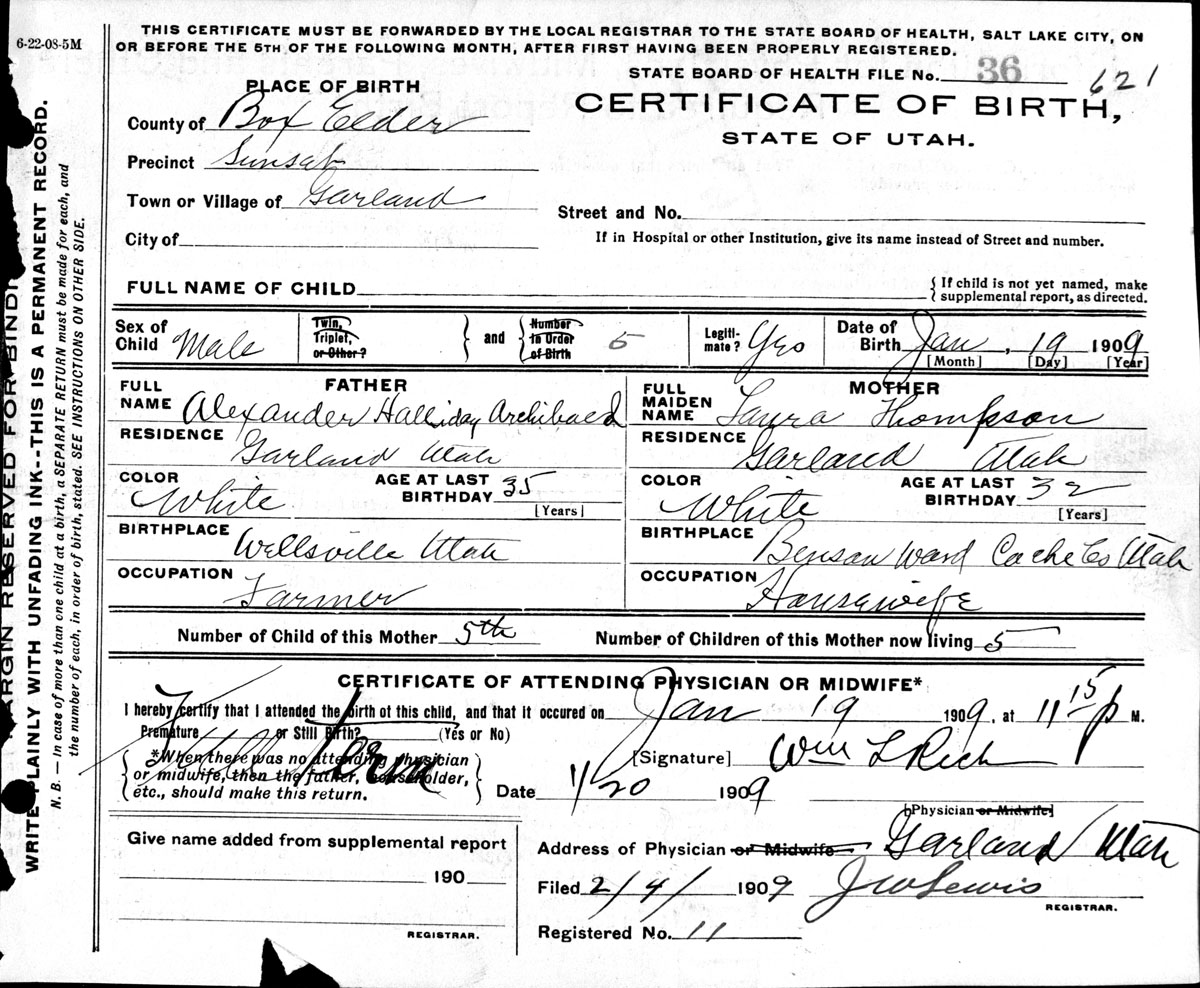 6-22-08-5M
THIS CERTIFICATE MUST BE FORWARDED BY THE LOCAL REGISTRAR TO THE STATE BOARD OF HEALTH, SALT LAKE CITY, ON
OR BEFORE THE 5TH OF THE FOLLOWING MONTH, AFTER FIRST HAVING BEEN PROPERLY REGISTERED.
STATE BOARD OF HEALTH FILE No. 36 621
PLACE OF BIRTH
CERTIFICATE OF BIRTH,
STATE OF UTAH.
County of Box Elder
Precinct Sunset
Town or Village of Garland
Street and No.
City of
If in Hospital or other Institution, give its name instead of Street and number.
FULL NAME OF CHILD
{ If child is not yet named, make
supplemental report, as directed.
Sex of Child Male
Twin, Triplet, or Other?
and
Number in Order of Birth 5
Legiti-mate? Yes
Date of Birth Jan, 19 1909
[Month] [Day] [Year]
FATHER
FULL NAME Alexander Halliday Archibald
RESIDENCE Garland Utah
COLOR White
AGE AT LAST BIRTHDAY 35
[Years]
BIRTHPLACE Wellsville Utah
OCCUPATION Farmer
MOTHER
FULL MAIDEN NAME Laura Thompson
RESIDENCE Garland Utah
COLOR White
AGE AT LAST BIRTHDAY 32
[Years]
BIRTHPLACE Benson Ward Cache Co Utah
OCCUPATION Housewife
Number of Child of this Mother 5th
Number of Children of this Mother now living 5
CERTIFICATE OF ATTENDING PHYSICIAN OR MIDWIFE*
I hereby certify that I attended the birth of this child, and that it occured on Jan 19 1909, at 11 15 p M.
Premature or Still Birth? (Yes or No)
Full Term
*When there was no attending physician
or midwife, then the father, householder,
etc., should make this return.
[Signature] Wm L Rich
Date 1/20 1909
[Physician or Midwife]
Give name added from supplemental report
190
REGISTRAR.
Address of Physician or Midwife Garland Utah
Filed 2/4/ 1909 J W Lewis
REGISTRAR.
Registered No. 11
MARGIN RESERVED FOR BINDI
WRITE PLAINLY WITH UNFADING INK--THIS IS A PERMANENT RECORD.
N. B. — In case of more than one child at a birth, a SEPARATE RETURN must be made for each, and
the number of each, in order of birth, stated. SEE INSTRUCTIONS ON OTHER SIDE.